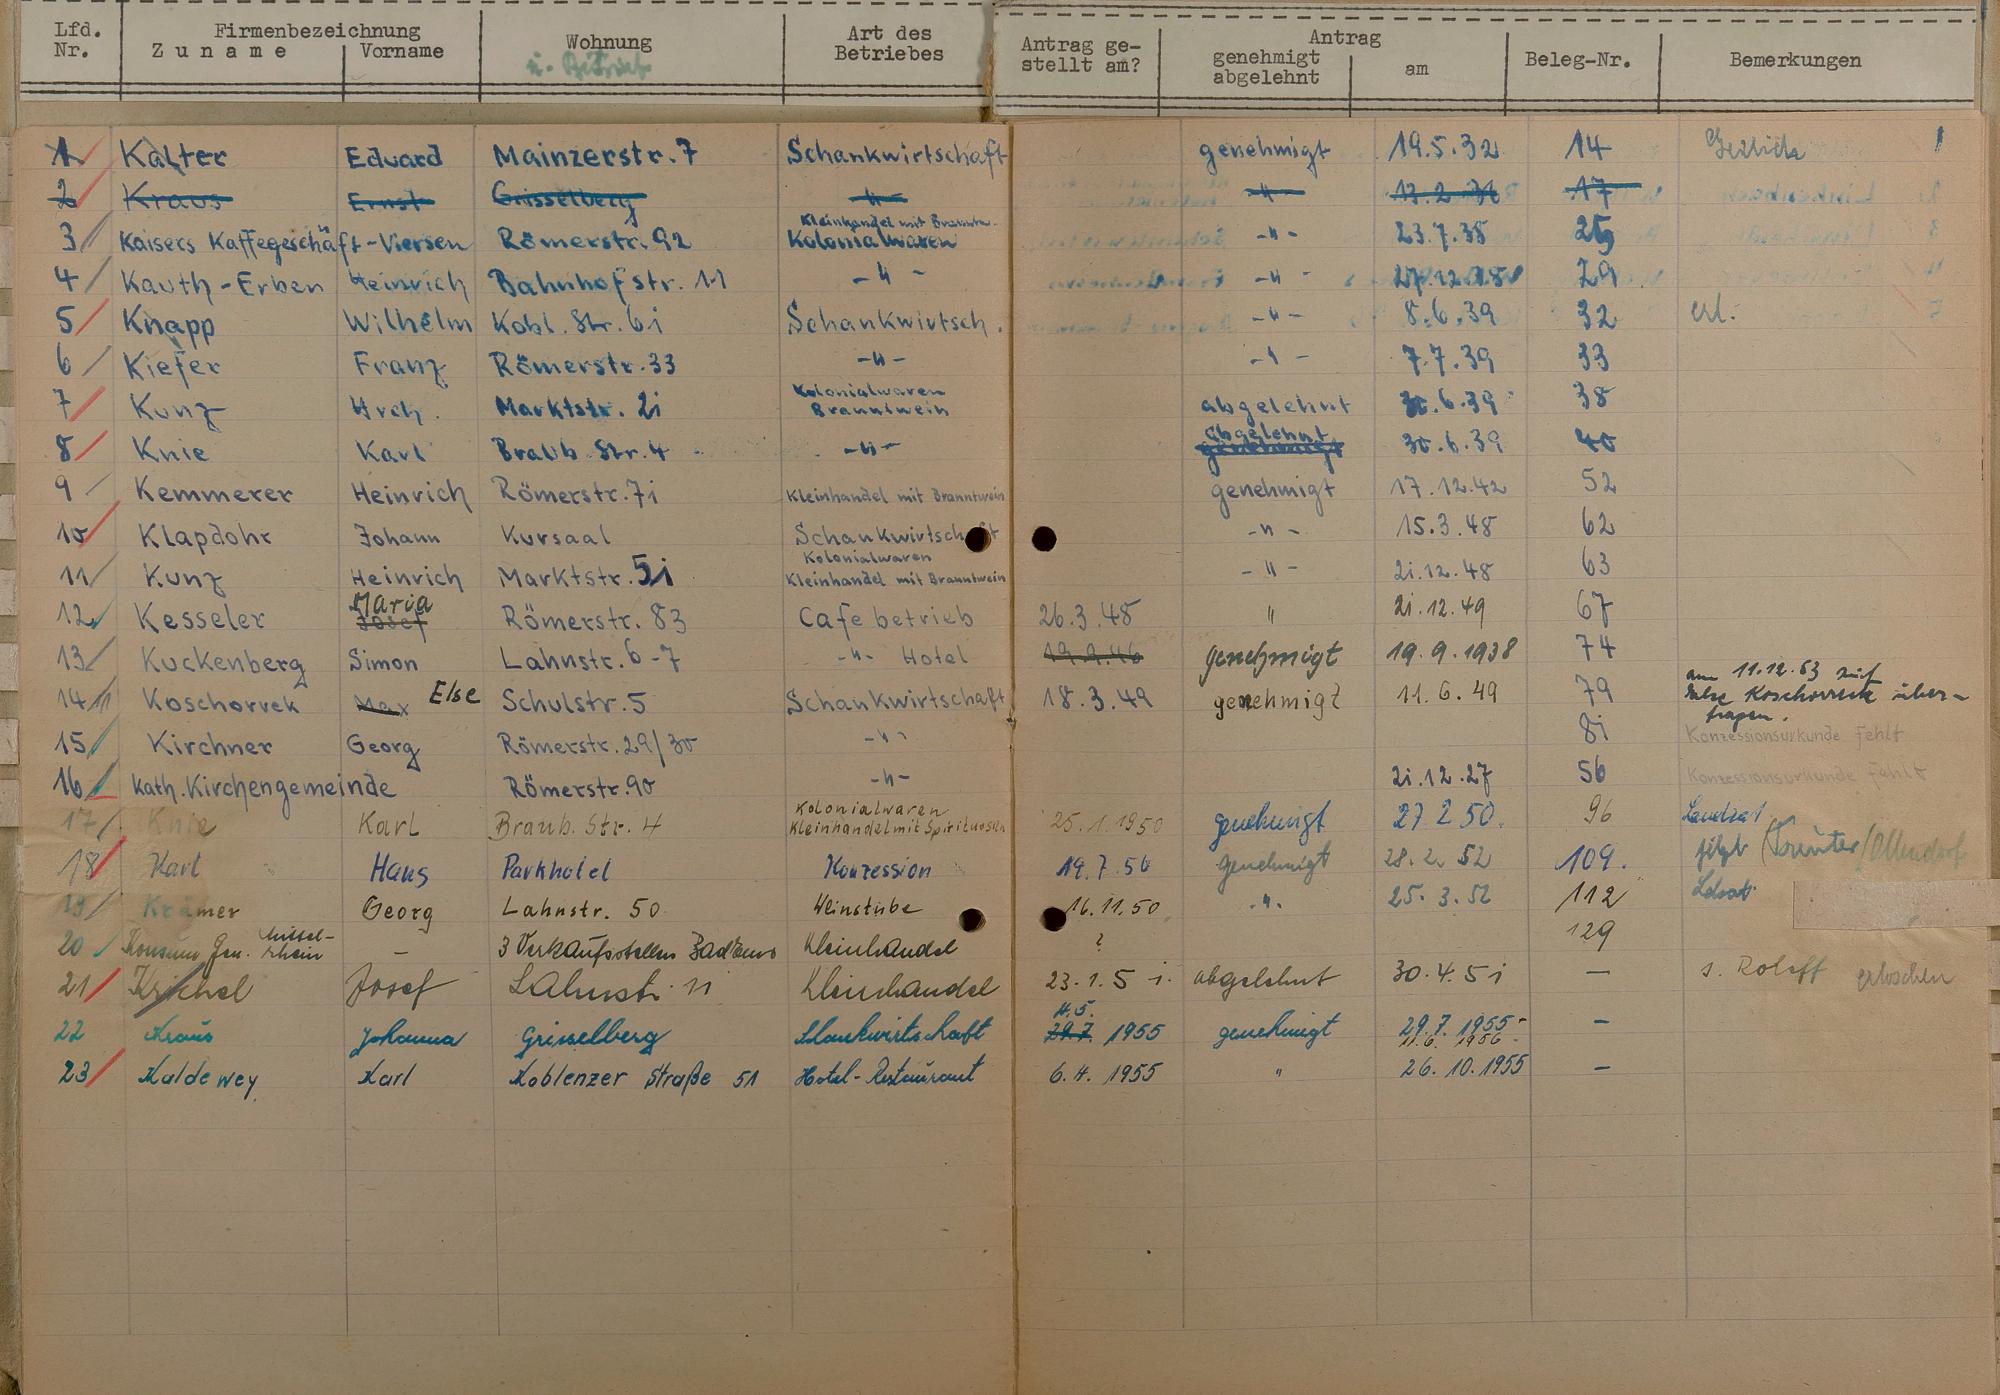 Lfd. Nr. Firmenbezeichnung Zuname Vorname Wohnung Art des Betriebes Antrag ge-stellt am? Antrag genehmigt abgelehnt am Beleg-Nr. Bemerkungen
1 Kalter Eduard Mainzerstr. 7 Schankwirtschaft genehmigt 19.5.32 14 1
2 Kraus Ernst Grisselberg -"- -"- 17
3 Kaisers Kaffegeschäft-Viersen Römerstr. 92 Kleinhandel mit Branntw. Kolonialwaren -"- 23.7.38
4 Kauth-Erben Heinrich Bahnhofstr. 11 -"- -"- 29
5 Knapp Wilhelm Kobl. Str. 61 Schankwirtsch. -"- 8.6.39 32 erl.
6 Kiefer Franz Römerstr. 33 -"- -"- 7.7.39 33
7 Kunz Hrch. Marktstr. 21 Kolonialwaren Branntwein abgelehnt 30.6.39 38
8 Knie Karl Braub. Str. 4 -"- abgelehnt genehmigt 30.6.39 40
9 Kemmerer Heinrich Römerstr. 71 Kleinhandel mit Branntwein genehmigt 17.12.42 52
10 Klapdohr Johann Kursaal Schankwirtschaft -"- 15.3.48 62
11 Kunz Heinrich Marktstr. 51 Kolonialwaren Kleinhandel mit Branntwein -"- 21.12.48 63
12 Kesseler Maria Josef Römerstr. 83 Cafebetrieb 26.3.48 " 21.12.49 67
13 Kuckenberg Simon Lahnstr. 6-7 -"- Hotel 19.9.46 genehmigt 19.9.1938 74
14 Koschorrek Max Else Schulstr. 5 Schankwirtschaft 18.3.49 genehmigt 11.6.49 79 am 11.12.63 auf Else Koschorreck über-tragen.
15 Kirchner Georg Römerstr. 29/30 -"- 81 Konzessionsurkunde fehlt
16 kath. Kirchengemeinde Römerstr. 90 -"- 21.12.27 56 Konzessionsurkunde fehlt
17 Knie Karl Braub. Str. 4 Kolonialwaren Kleinhandel mit Spirituosen 25.1.1950 genehmigt 27.2.50. 96 Landrat
18 Karl Hans Parkhotel Konzession 19.7.50 genehmigt 28.2.52 109.
19 Krämer Georg Lahnstr. 50 Weinstube 16.11.50 -"- 25.3.52 112
20 Konsum Gen. Mittel-rhein - 3 Verkaufsstellen Bad Ems Kleinhandel ? 129
21 Krichel Josef Lahnstr. 11 Kleinhandel 23.1.51. abgelehnt 30.4.51 - s. Roleff erloschen
22 Kraus Johanna Grisselberg Schankwirtschaft 4.5. 29.7. 1955 genehmigt 29.7.1955- 11.6.1956- -
23 Kaldewey Karl Koblenzer Straße 51 Hotel-Restaurant 6.4.1955 " 26.10.1955 -